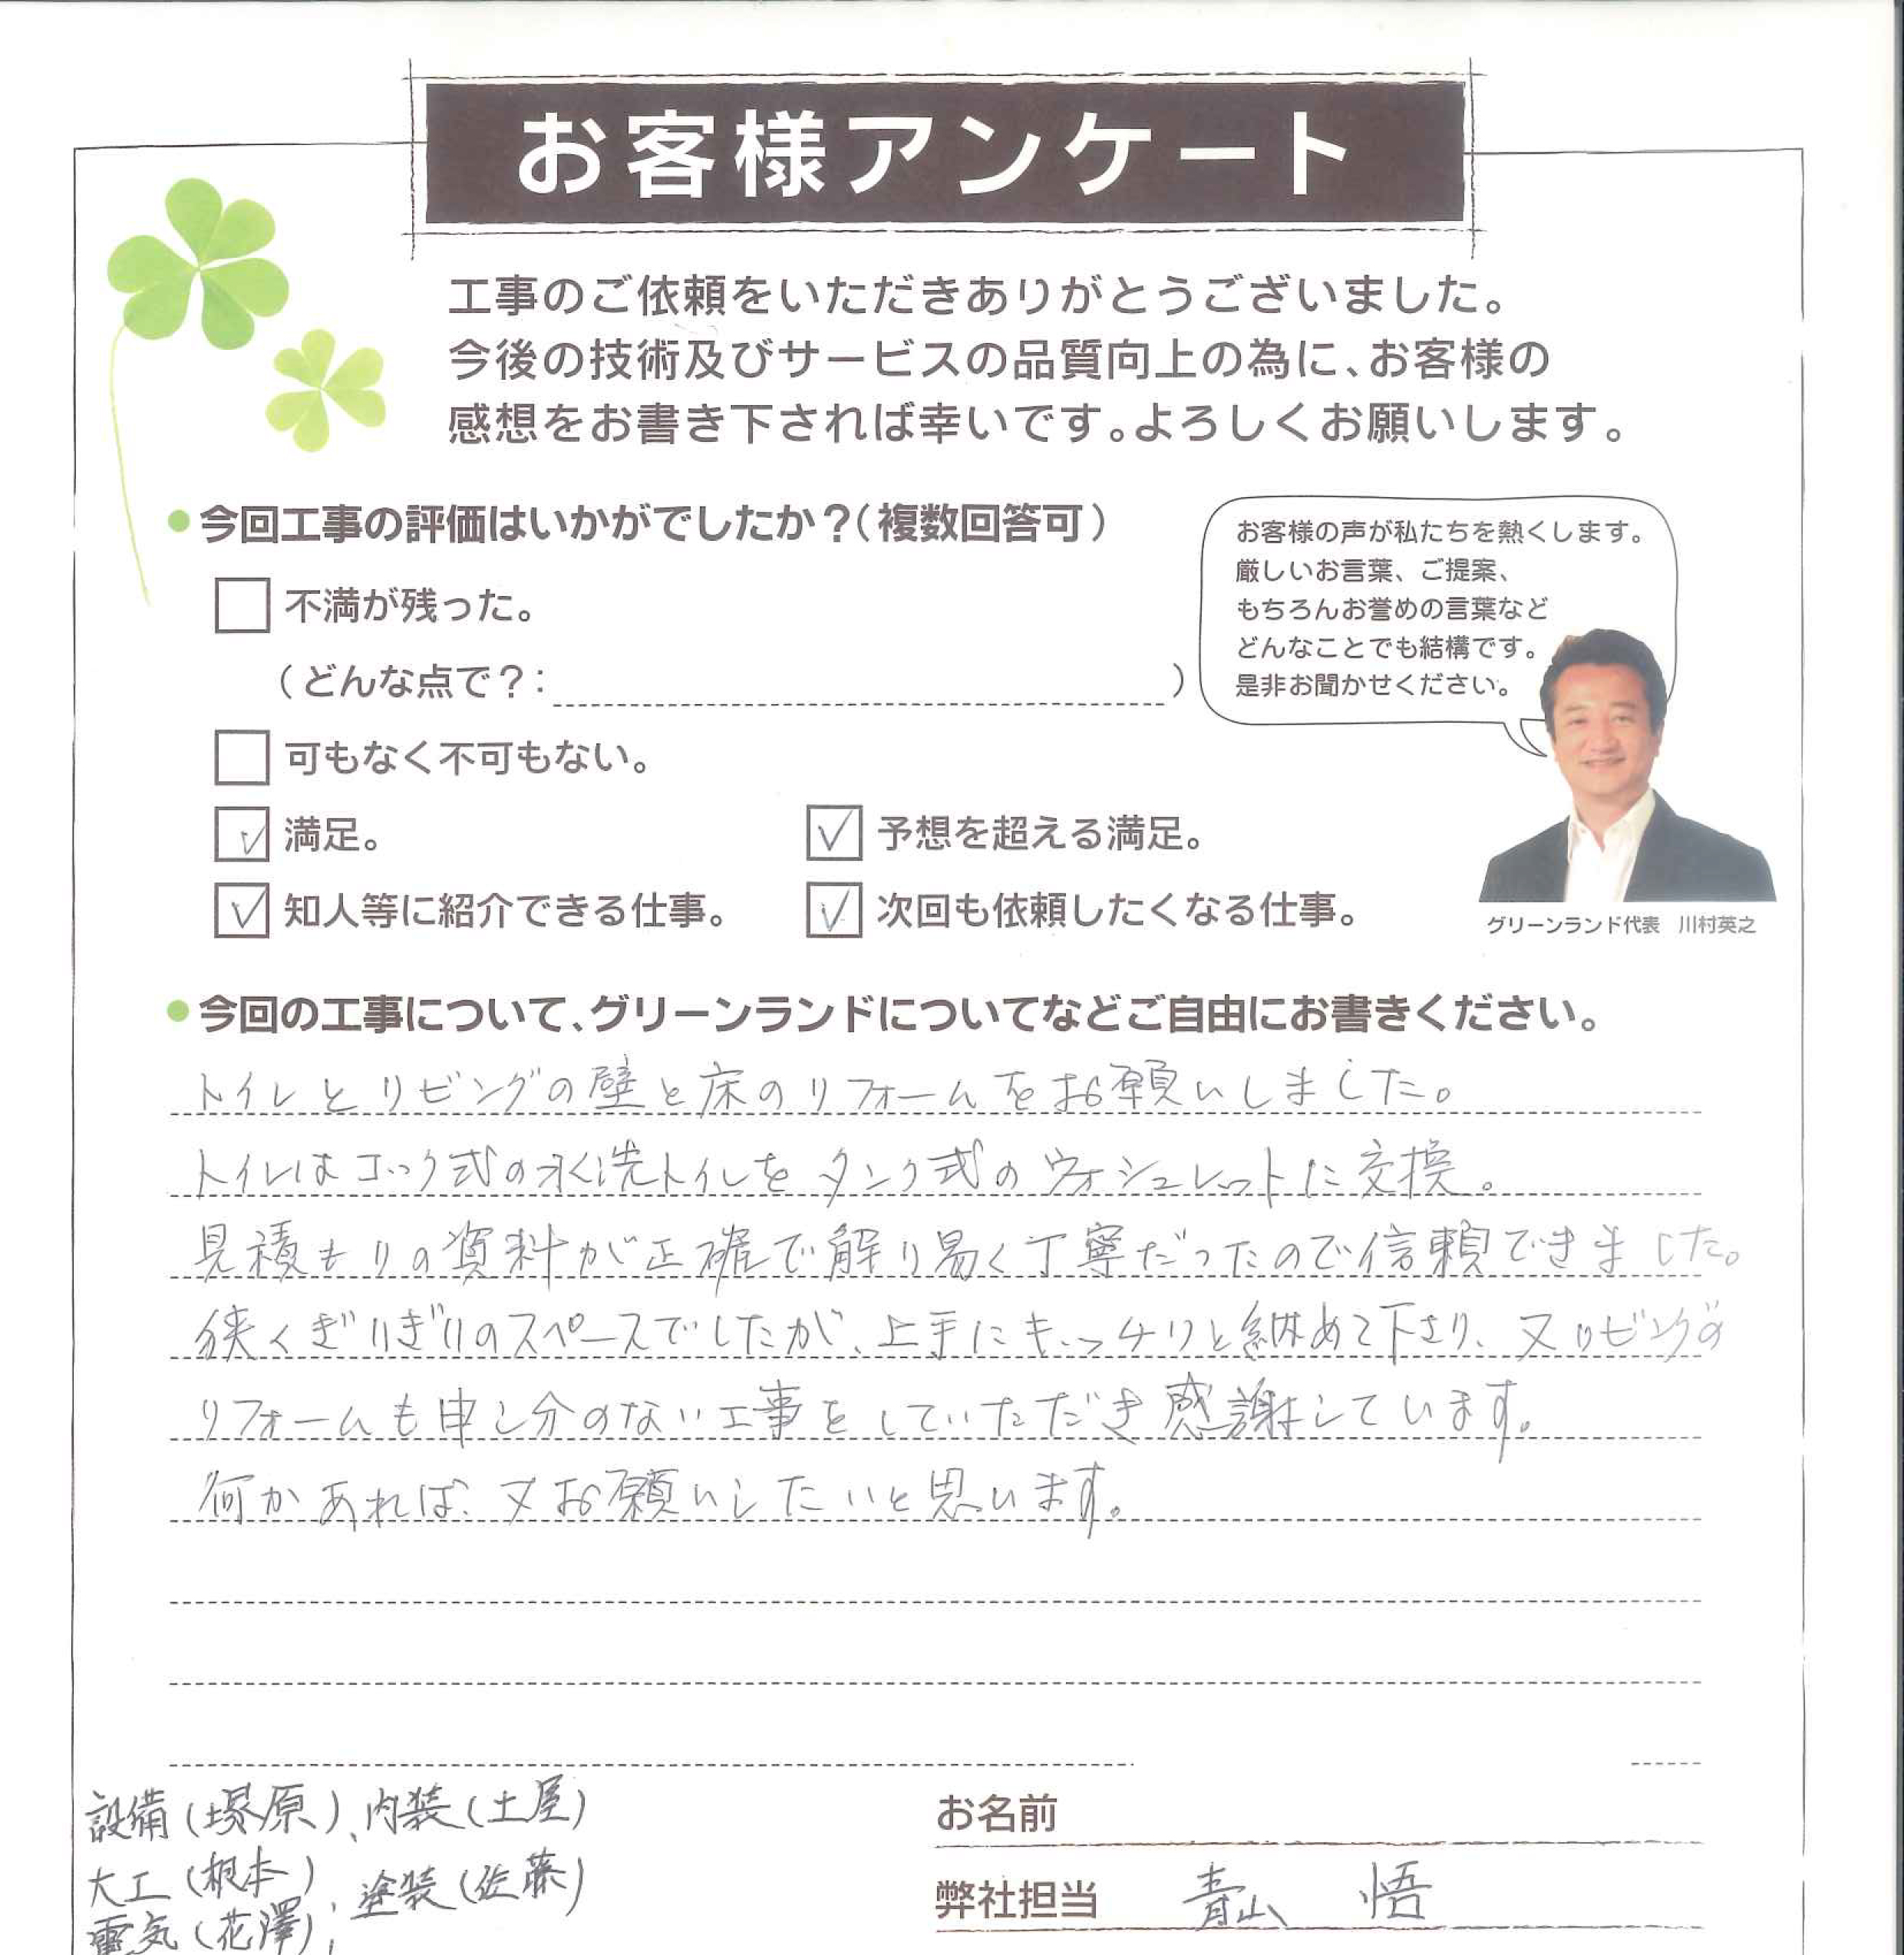 お客様アンケート
工事のご依頼をいただきありがとうございました。
今後の技術及びサービスの品質向上の為に、お客様の
感想をお書き下されば幸いです。よろしくお願いします。
●今回工事の評価はいかがでしたか?(複数回答可)
不満が残った。
(どんな点で?: )
可もなく不可もない。
満足。
予想を超える満足。
知人等に紹介できる仕事。
次回も依頼したくなる仕事。
お客様の声が私たちを熱くします。
厳しいお言葉、ご提案、
もちろんお誉めの言葉など
どんなことでも結構です。
是非お聞かせください。
グリーンランド代表 川村英之
●今回の工事について、グリーンランドについてなどご自由にお書きください。
トイレとリビングの壁と床のリフォームをお願いしました。
トイレはコック式の水洗トイレをタンク式のウォシュレットに交換。
見積もりの資料が正確で解り易く丁寧だったので信頼できました。
狭くぎりぎりのスペースでしたが、上手にキッチリと納めて下さり、又リビングの
リフォームも申し分のない工事をしていただき感謝しています。
何かあれば、又お願いしたいと思います。
設備(塚原)、内装(土屋)
大工(根本)、塗装(佐藤)
電気(花澤)、
お名前
弊社担当 青山 悟